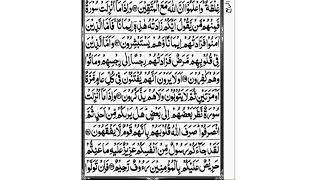 غِلْظَةً ۚ وَاعْلَمُوْۤا اَنَّ اللّٰهَ مَعَ الْمُتَّقِيْنَ ۝ وَاِذَا مَاۤ اُنْزِلَتْ سُوْرَةٌ
فَمِنْهُمْ مَّنْ يَّقُوْلُ اَيُّكُمْ زَادَتْهُ هٰذِهٖۤ اِيْمَانًا ۚ فَاَمَّا الَّذِيْنَ
اٰمَنُوْا فَزَادَتْهُمْ اِيْمَانًا وَّهُمْ يَسْتَبْشِرُوْنَ ۝ وَاَمَّا الَّذِيْنَ
فِيْ قُلُوْبِهِمْ مَّرَضٌ فَزَادَتْهُمْ رِجْسًا اِلٰى رِجْسِهِمْ وَمَاتُوْا
وَهُمْ كٰفِرُوْنَ ۝ اَوَلَا يَرَوْنَ اَنَّهُمْ يُفْتَنُوْنَ فِيْ كُلِّ عَامٍ مَّرَّةً
اَوْ مَرَّتَيْنِ ثُمَّ لَا يَتُوْبُوْنَ وَلَا هُمْ يَذَّكَّرُوْنَ ۝ وَاِذَا مَاۤ اُنْزِلَتْ
سُوْرَةٌ نَّظَرَ بَعْضُهُمْ اِلٰى بَعْضٍ ؕ هَلْ يَرٰىكُمْ مِّنْ اَحَدٍ ثُمَّ
انْصَرَفُوْا ؕ صَرَفَ اللّٰهُ قُلُوْبَهُمْ بِاَنَّهُمْ قَوْمٌ لَّا يَفْقَهُوْنَ ۝
لَقَدْ جَآءَكُمْ رَسُوْلٌ مِّنْ اَنْفُسِكُمْ عَزِيْزٌ عَلَيْهِ مَا عَنِتُّمْ
حَرِيْصٌ عَلَيْكُمْ بِالْمُؤْمِنِيْنَ رَءُوْفٌ رَّحِيْمٌ ۝ فَاِنْ تَوَلَّوْا